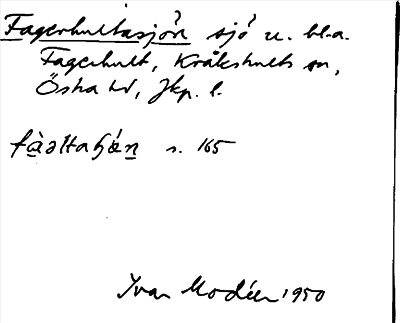 Fagerhultasjön sjö u. bl.a.
Fagerhult, Kråkshults sn,
Östra hd, Jkp. l.
s. 165
Ivar Modéer 1950